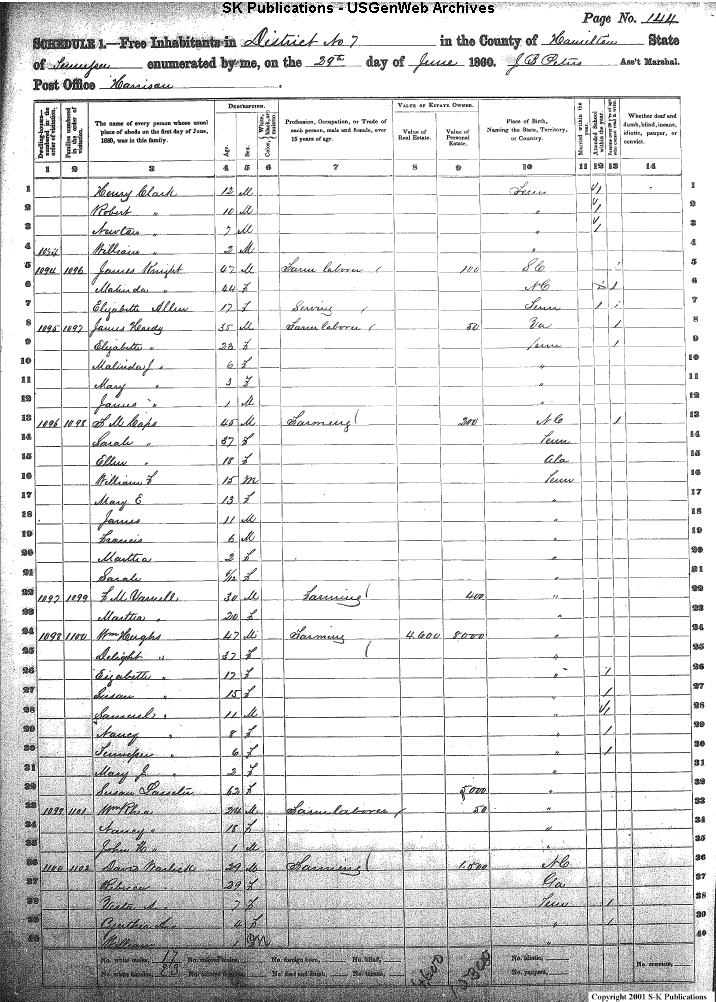 SK Publications - USGenWeb Archives
Page No. 144
SCHEDULE 1.—Free Inhabitants in District No 7 in the County of Hamilton State
of Tennessee enumerated by me, on the 29th day of June 1860. J B Peters Ass't Marshal.
Post Office Harrison.
Dwelling-houses—numbered in the order of visitation.
Families numbered in the order of visitation.
The name of every person whose usual place of abode on the first day of June, 1860, was in this family.
DESCRIPTION.
Age.
Sex.
Color, White, black, or mulatto.
Profession, Occupation, or Trade of each person, male and female, over 15 years of age.
VALUE OF ESTATE OWNED.
Value of Real Estate.
Value of Personal Estate.
Place of Birth, Naming the State, Territory, or Country.
Married within the year.
Attended School within the year.
Persons over 20 y'rs of age who cannot read & write.
Whether deaf and dumb, blind, insane, idiotic, pauper, or convict.
1 2 3 4 5 6 7 8 9 10 11 12 13 14
1 Henry Clark 12 M Tenn 1 1
2 Robert " 10 M " 1 2
3 Newton " 7 M " 1 3
4 William " 2 M " 4
5 1094 1096 James Knight 47 M Farm laborer 100 S C 5
6 Malinda " 44 F N C 1 6
7 Elizabeth Allen 17 F Serving Tenn 1 7
8 1095 1097 James Hardy 35 M Farm laborer 50 Va 1 8
9 Elizabeth " 23 F Tenn 1 9
10 Malinda J " 6 F " 10
11 Mary " 3 F " 11
12 James " 1 M " 12
13 1096 1098 F M Caps 45 M Farming 200 N C 1 13
14 Sarah " 37 F Tenn 14
15 Ellen " 18 F Ala 15
16 William F 15 M Tenn 16
17 Mary E 13 F " 17
18 James 11 M 18
19 Francis 6 M " 19
20 Martha 2 F " 20
21 Sarah F " 21
22 1097 1099 F M Varnell 30 M Farming 400 " 22
23 Martha " 20 F " 23
24 1098 1100 Wm Heughs 47 M Farming 4.600 8000 " 24
25 Delight " 37 F " 25
26 Eizabeth " 17 F " 1 26
27 Susan " 15 F " 1 27
28 Samuel " 11 M " 1 28
29 Nancy " 8 F " 1 29
30 " 6 F " 1 30
31 Mary J " 2 F " 31
32 Susan 62 F 5,000 " 32
33 1099 1101 Wm 24 M Farm laborer 50 " 33
34 Nancy " 18 F " 34
35 John H " 1 M " 35
36 1100 1102 David Warlick 29 M Farming 1.500 N C 36
37 29 F Ga 37
38 A " 7 F Tenn 1 38
39 Cynthia A " 4 F " 1 39
40 William 1 M " 40
No. white males, 17 No. colored males, No. foreign born, No. blind, No. idiotic, No. convicts,
No. white females, 23 No. colored females, No. deaf and dumb, No. insane, 4600 No. paupers,
Copyright 2001 S-K Publications